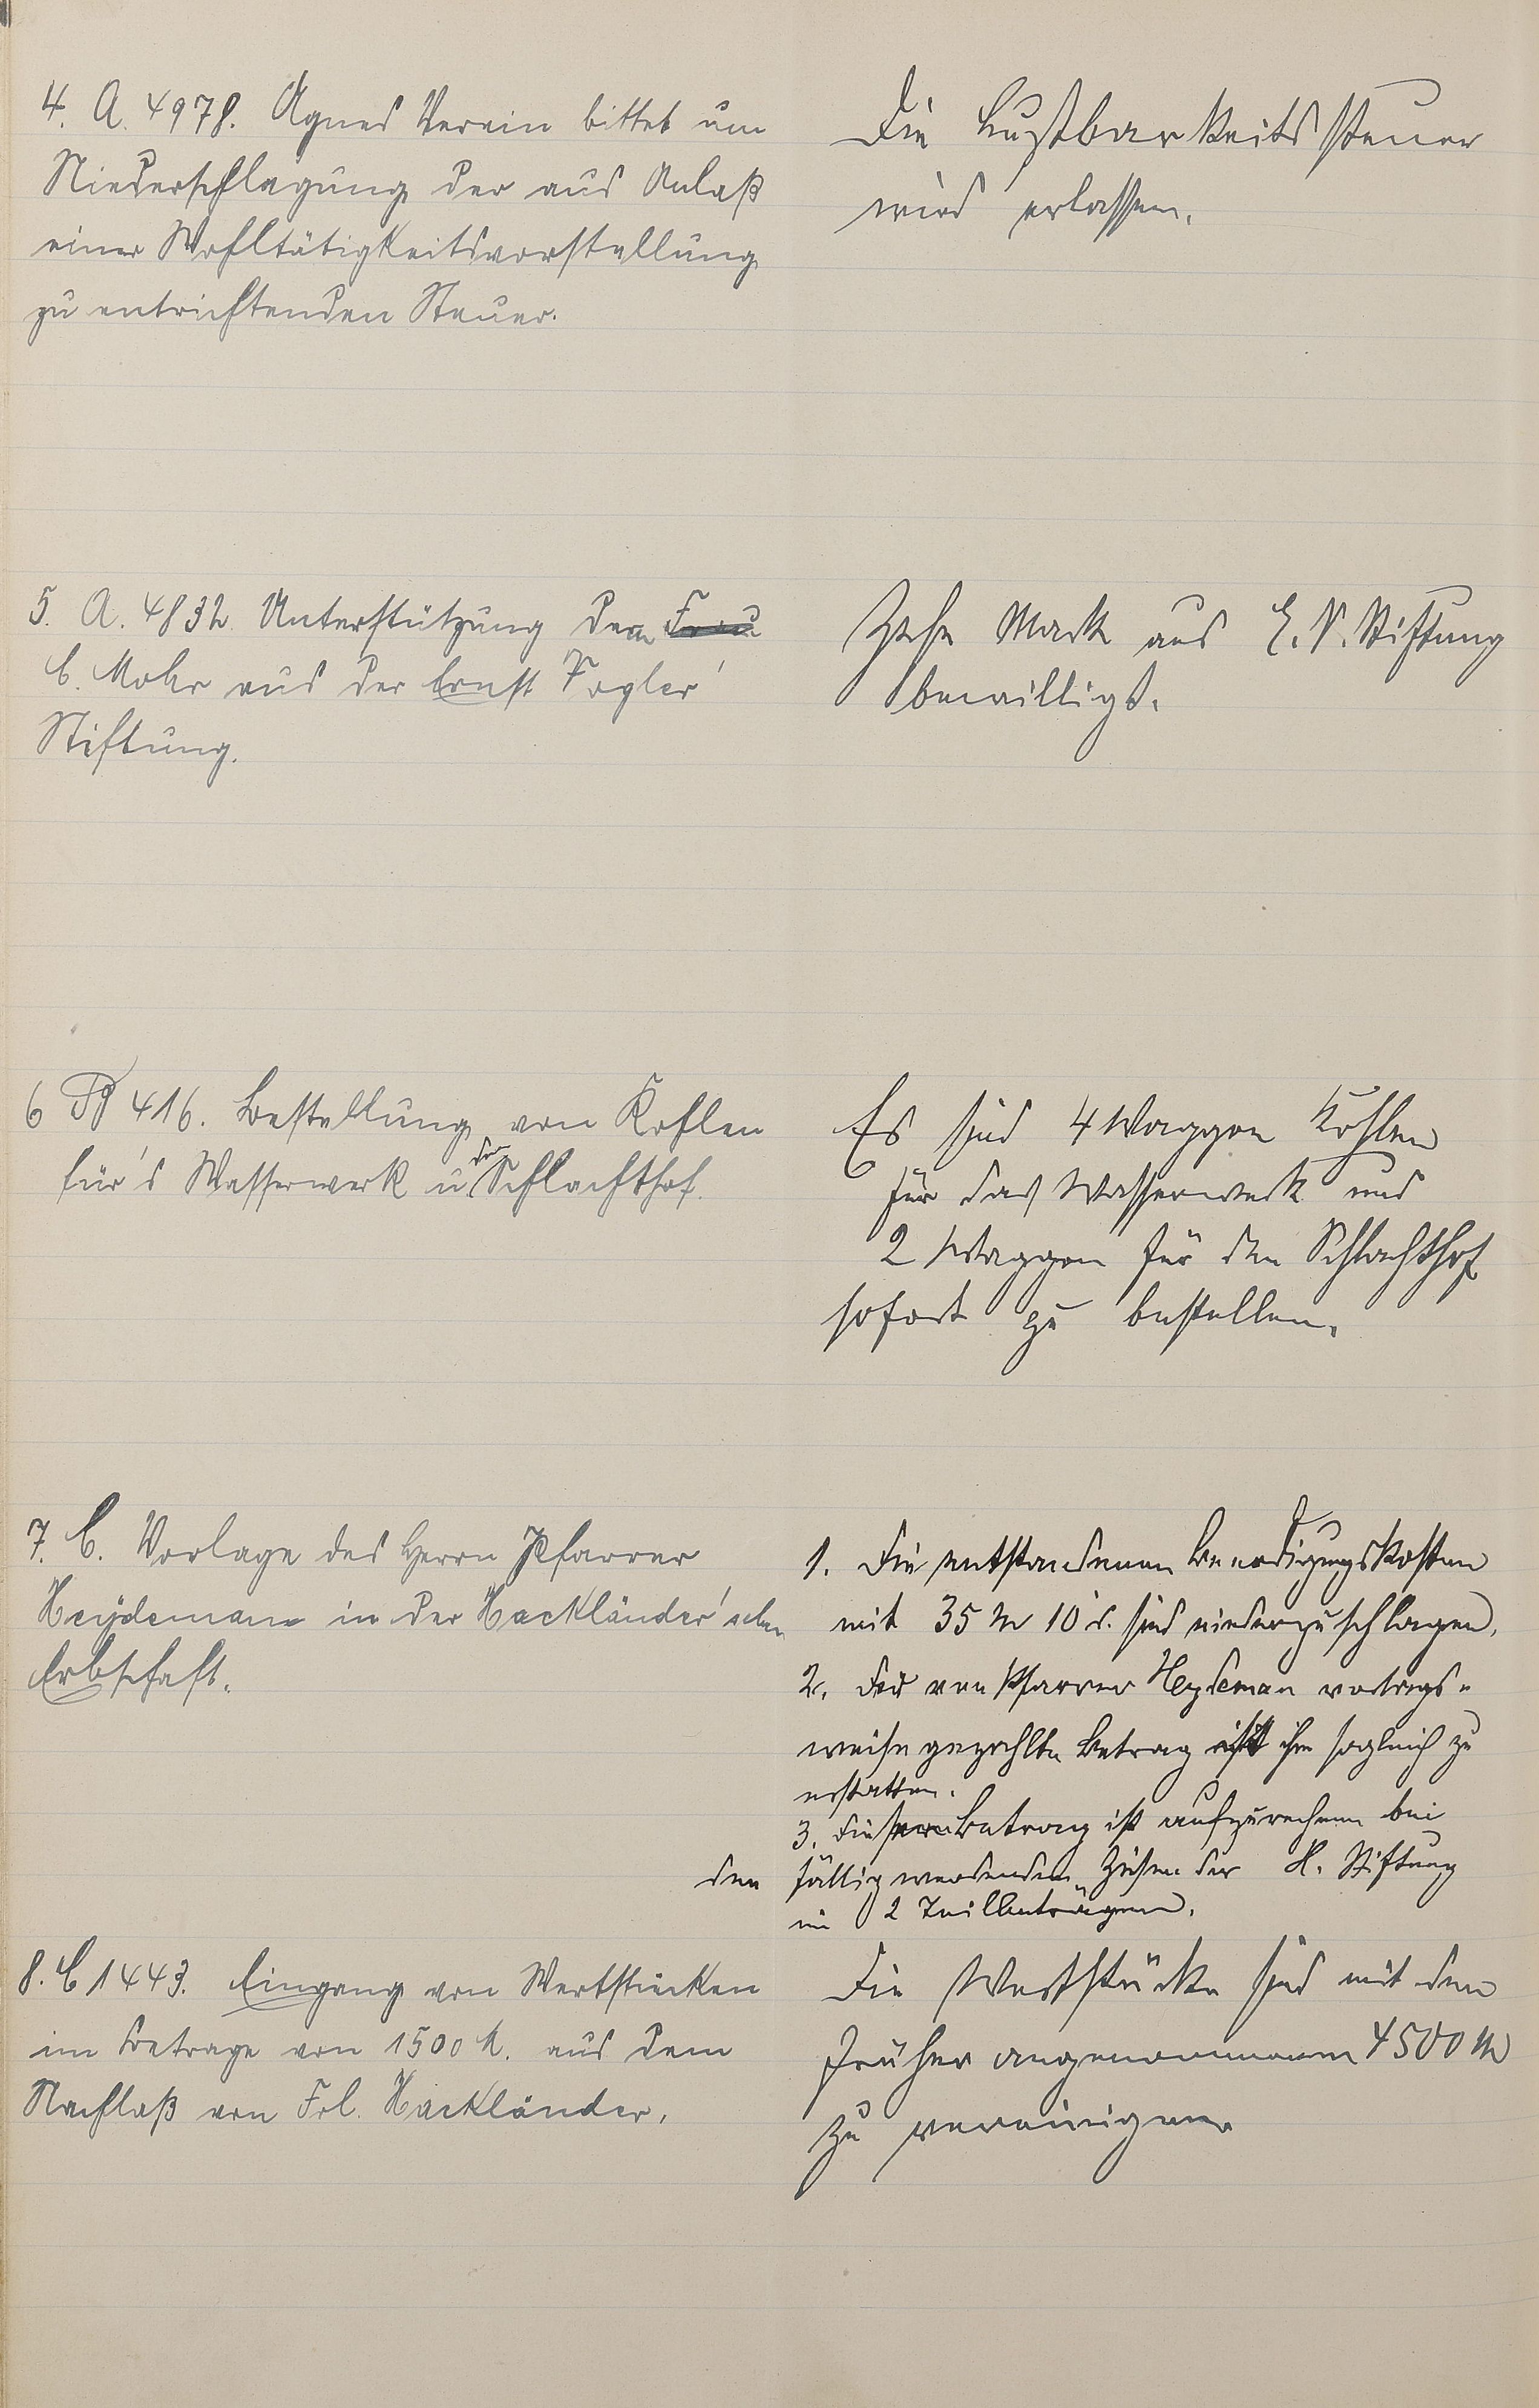 4. A. 4978. Agnes Verein bittet um
Niederschlagung der aus Anlaß
einer Wohltätigkeitsvorstellung
zu entrichtenden Steuer.
Die Lustbarkeitssteuer
wird erlassen.
5. A. 4832. Unterstützung der Frau
C. Mohr aus der Ernst Vogler'
Stiftung.
Zehn Mark aus E. V. Stiftung
bewilligt.
6 416. Bestellung von Kohlen
für's Wasserwerk u den Schlachthof.
Es sind 4 Waggon Kohlen
für das Wasserwerk und
2 Waggon für den Schlachthof
sofort zu bestellen.
7. C. Vorlage des Herrn Pfarrer
Heydemann in der Hackländer'schen
Erbschaft.
1. Die entstandenen Beerdigungskosten
mit 35 M 10 d. sind niederzuschlagen.
2. Der von Pfarrer Heydeman vortrags-
weise gezahlte Betrag ist ihm sogleich zu
erstatten.
3. Dieser Betrag ist aufzurechnen bei
den fällig werdenden Zinsen der H. Stiftung
in 2 Teilbeträgen.
8. C 1443. Eingang von Wertstücken
im Betrage von 1500 M. aus dem
Nachlaß von Frl. Hackländer.
Die Wertstücke sind mit den
früher angenommenen 4500 M
zu vereinigen.